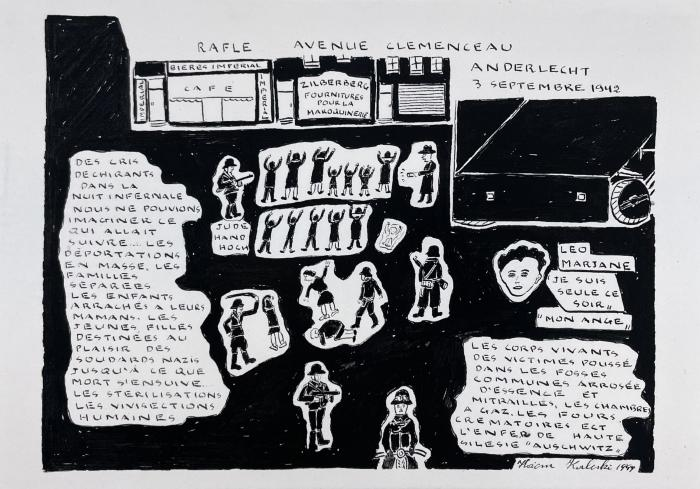 RAFLE AVENUE CLEMENCEAU
ANDERLECHT
3 SEPTEMBRE 1942
BIERES IMPERIAL
IMPERIAL
CAFE
IMPERIAL
ZILBERBERG
FOURNITURES
POUR LA
MAROQUINERIE
DES CRIS
DECHIRANTS
DANS LA
NUIT INFERNALE
NOUS NE POUVIONS
IMAGINER CE
QUI ALLAIT
SUIVRE... LES
DÉPORTATIONS
EN MASSE, LES
FAMILLES
SÉPARÉES
LES ENFANTS
ARRACHÉS A LEURS
MAMANS. LES
JEUNES FILLES
DESTINÉES AU
PLAISIR DES
SOUDARDS NAZIS
JUSQU'À CE QUE
MORT S'ENSUIVE...
LES STÉRILISATIONS
LES VIVISECTIONS
HUMAINES
JUDE
HAND
HOCH
LEO
MARJANE
JE SUIS
SEULE CE
SOIR"
"MON ANGE"
LES CORPS VIVANTS
DES VICTIMES POUSSÉ
DANS LES FOSSES
COMMUNES ARROSÉE
D'ESSENCE ET
MITRAILLES, LES CHAMBRES
A GAZ, LES FOURS
CREMATOIRES ECT
L'ENFER DE HAUTE
SILESIE "AUSCHWITZ"